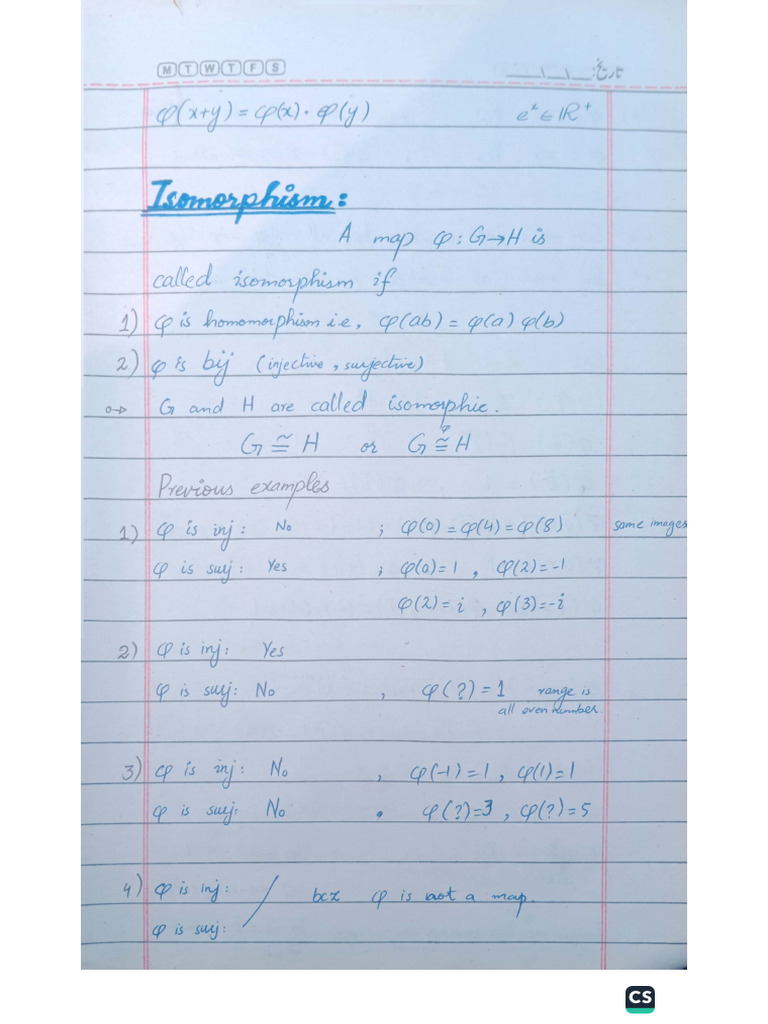 M T W T F S
تاریخ:
φ(x+y) = φ(x)·φ(y) eˣ ∈ ℝ⁺
Isomorphism:
A map φ: G→H is
called isomorphism if
1) φ is homomorphism i.e, φ(ab) = φ(a) φ(b)
2) φ is bij (injective, surjective)
G and H are called isomorphic.
G ≅ H or G ≅ᵠ H
Previous examples
1) φ is inj: No ; φ(0) = φ(4) = φ(8) same images
φ is surj: Yes ; φ(0)=1 , φ(2)=-1
φ(2)= i , φ(3)=-i
2) φ is inj: Yes
φ is surj: No , φ(?) = 1 range is
all even number.
3) φ is inj: No , φ(-1)=1 , φ(1)=1
φ is surj: No . φ(?)=3 , φ(?)=5
4) φ is inj: bcz φ is not a map.
φ is surj:
CS